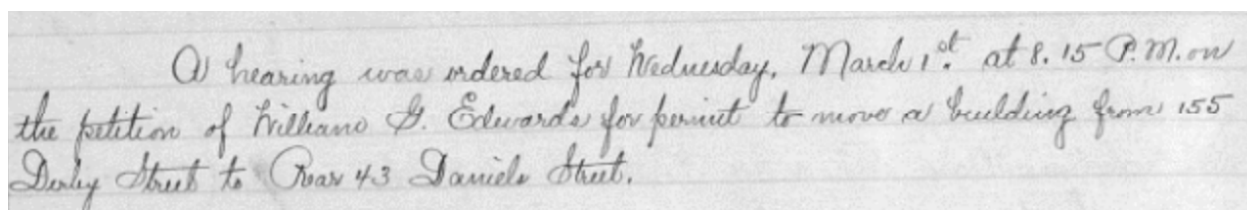 A hearing was ordered for Wednesday, March 1st. at 8.15 P.M. on
the petition of William G. Edwards for permit to move a building from 155
Derby Street to Rear 43 Daniels Street.